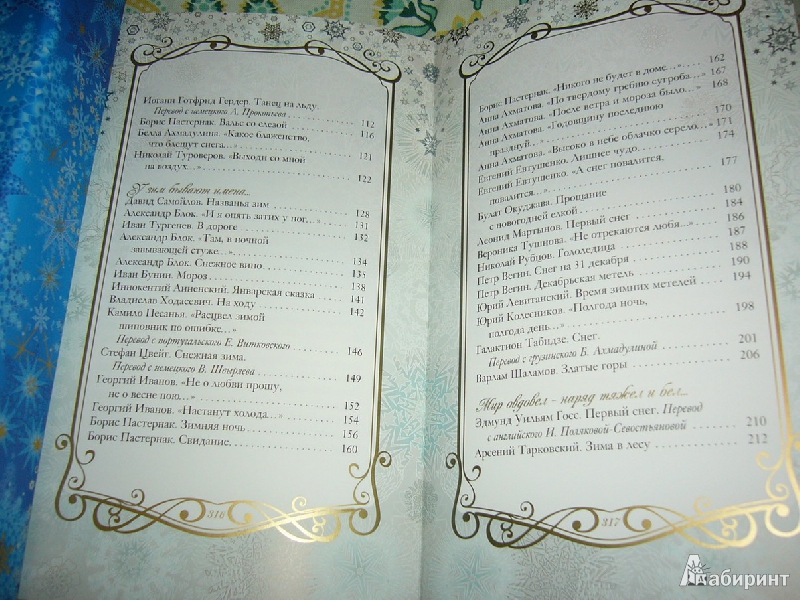 Иоганн Готфрид Гердер. Танец на льду.
Перевод с немецкого А. Прокопьева 112
Борис Пастернак. Вальс со слезой 116
Белла Ахмадулина. «Какое блаженство,
что блещут снега...» 121
Николай Туроверов. «Выходи со мной
на воздух...» 122
У зим бывают имена...
Давид Самойлов. Названья зим 128
Александр Блок. «И я опять затих у ног...» 131
Иван Тургенев. В дороге 132
Александр Блок. «Там, в ночной
завывающей стуже...» 134
Александр Блок. Снежное вино 135
Иван Бунин. Мороз 138
Иннокентий Анненский. Январская сказка 141
Владислав Ходасевич. На ходу 142
Камило Песанья. «Расцвел зимой
шиповник по ошибке...»
Перевод с португальского Е. Витковского 146
Стефан Цвейг. Снежная зима.
Перевод с немецкого 149
Георгий Иванов. «Не о любви прошу,
не о весне пою...» 152
Георгий Иванов. «Настанут холода...» 154
Борис Пастернак. Зимняя ночь 156
Борис Пастернак. Свидание 160
316
Борис Пастернак. «Никого не будет в доме...» 162
Анна Ахматова. «По твердому гребню сугроба...» 167
Анна Ахматова. «После ветра и мороза было...» 168
Анна Ахматова. «Годовщину последнюю
празднуй...» 170
Анна Ахматова. «Высоко в небе облачко серело...» 171
Евгений Евтушенко. Лишнее чудо 174
Евгений Евтушенко. «А снег повалится,
повалится...» 177
Булат Окуджава. Прощание
с новогодней елкой 180
Леонид Мартынов. Первый снег 184
Вероника Тушнова. «Не отрекаются любя...» 186
Николай Рубцов. Гололедица 187
Петр Вегин. Снег на 31 декабря 188
Петр Вегин. Декабрьская метель 190
Юрий Левитанский. Время зимних метелей 194
Юрий Колесников. «Полгода ночь,
полгода день...» 198
Галактион Табидзе. Снег.
Перевод с грузинского Б. Ахмадулиной 201
Варлам Шаламов. Златые горы 206
Мир овдовел – наряд тяжел и бел...
Эдмунд Уильям Госс. Первый снег. Перевод
с английского И. Поляковой-Севостьяновой 210
Арсений Тарковский. Зима в лесу 212
317
Лабиринт